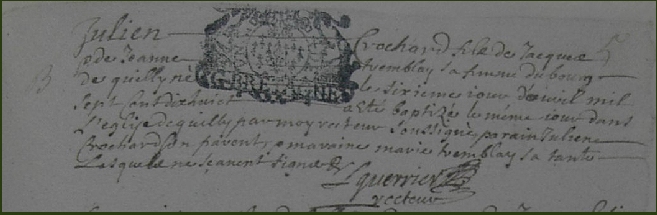 Julien Crochard fils de Jacque
& de Jeanne tremblay sa femme du bourg
de quilly né le sixieme jour d'avril mil
sept sent dix huict a esté baptizé le même jour dans
l'eglise de quilly par moy recteur soussigné parain Julien
Crochard son parent, & maraine marie tremblay sa tante
Lasquels ne sçavent signer
G. BRETAGNE
L guerrier
recteur
B